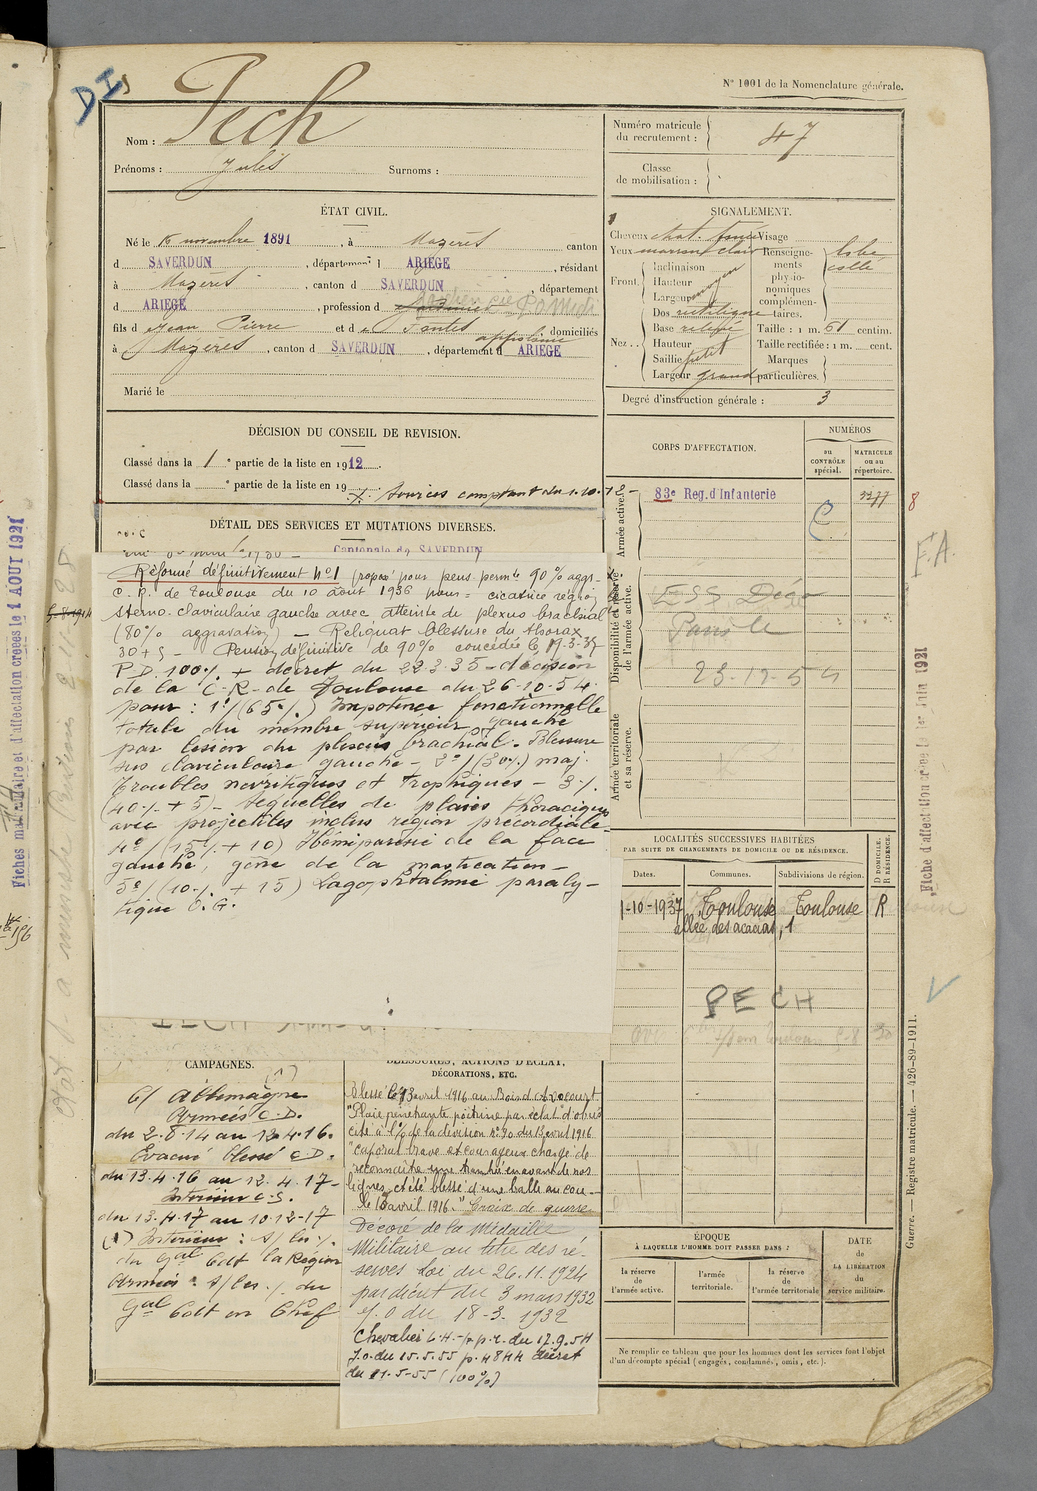 DIs
N° 1001 de la Nomenclature générale.
Nom : Pech
Prénoms : Jules Surnoms :
Numéro matricule du recrutement : 47
Classe de mobilisation :
ÉTAT CIVIL.
Né le 16 novembre 1891, à Mazères canton
d SAVERDUN, département d ARIEGE, résidant
à Mazères, canton d SAVERDUN, département
d ARIEGE, profession d
fils d Jean Pierre et d domiciliés
à Mazères, canton d SAVERDUN, département d ARIEGE
Marié le
SIGNALEMENT.
Cheveux chat. foncé Visage
Yeux marron clair Renseignements physionomiques complémentaires. lobe collé
Front. Inclinaison
Hauteur moyen
Largeur
Nez. Dos rectiligne
Base relevé
Hauteur
Saillie petit
Largeur grand
Taille : 1 m. 61 centim.
Taille rectifiée : 1 m. cent.
Marques particulières.
Degré d'instruction générale : 3
DÉCISION DU CONSEIL DE REVISION.
Classé dans la 1e partie de la liste en 1912
Classé dans la e partie de la liste en 19
Services comptant du 1.10.12
DÉTAIL DES SERVICES ET MUTATIONS DIVERSES.
Cantonale de SAVERDUN
CORPS D'AFFECTATION.
NUMÉROS
au CONTRÔLE spécial.
MATRICULE ou au répertoire.
Armée active.
83e Reg. d'Infanterie
8
F.A.
Disponibilité et réserve de l'armée active.
Armée territoriale et sa réserve.
Réformé définitivement N°1 proposé pour pens. permte 90% aggr.
C.R. de Toulouse du 10 août 1936 pour = cicatrice région
sterno-claviculaire gauche avec atteinte du plexus brachial
(80% aggravation) – Reliquat blessure du thorax
30+5 – Pension définitive de 90% concédée le 17-3-37
P.D. 100% + décret du 22.3.35 – décision
de la C-R- de Toulouse du 26-10-54
pour : 1°/(65%) Impotence fonctionnelle
totale du membre supérieur gauche
par lésion du plexus brachial. Blessure
sus claviculaire gauche – 2°/(30%) maj.
troubles névritiques et trophiques – 3°/.
(40% + 5) – Séquelles de plaies thoraciques
avec projectiles inclus région précordiale
4°/(15% + 10) Hémiparésie de la face
gauche, gêne de la mastication –
5°/(10% + 15) Lagophtalmie paraly-
tique O.G.
LOCALITÉS SUCCESSIVES HABITÉES
PAR SUITE DE CHANGEMENTS DE DOMICILE OU DE RÉSIDENCE.
Dates. Communes. Subdivisions de région. D DOMICILE. R RÉSIDENCE.
1-10-1937 Toulouse Toulouse R
allée des acacias, 1
PECH
CAMPAGNES.
C/ Allemagne
Armées C.D.
du 2.8.14 au 12.4.16.
Evacué blessé C.D.
du 13.4.16 au 12.4.17 –
Intérieur C.S.
du 13.4.17 au 10-12-17
(1) Intérieur :
du Gal Cdt la Région
Armées : du
Gal Cdt en Chef
BLESSURES, ACTIONS D'ÉCLAT,
DÉCORATIONS, ETC.
Blessé le 13 avril 1916 au Bois d'Avocourt
"Plaie pénétrante poitrine par éclat d'obus"
cité à l'O/ de la division n° 90 du 13 avril 1916
"caporal brave et courageux chargé de
reconnaître une tranchée en avant de nos
lignes, a été blessé d'une balle au cou
le 13 avril 1916." Croix de guerre
Décoré de la Médaille
Militaire au titre des ré-
serves Loi du 26.11.1924
par décret du 3 mars 1932
J.O du 18-3-1932
Chevalier L.H. – p.r. du 12.9.54
J.O. du 15.5.55 p. 4844 décret
du 11-5-55 (100%)
ÉPOQUE
À LAQUELLE L'HOMME DOIT PASSER DANS :
la réserve de l'armée active.
l'armée territoriale.
la réserve de l'armée territoriale
DATE DE LA LIBÉRATION du service militaire.
Ne remplir ce tableau que pour les hommes dont les services font l'objet
d'un décompte spécial (engagés, condamnés, omis, etc.).
Guerre. — Registre matricule. — 426-89-1911.
Fiche d'affectation créée le 1er Juin 1921
Fiches matriculaire et d'affectation créées le 1 AOUT 1921